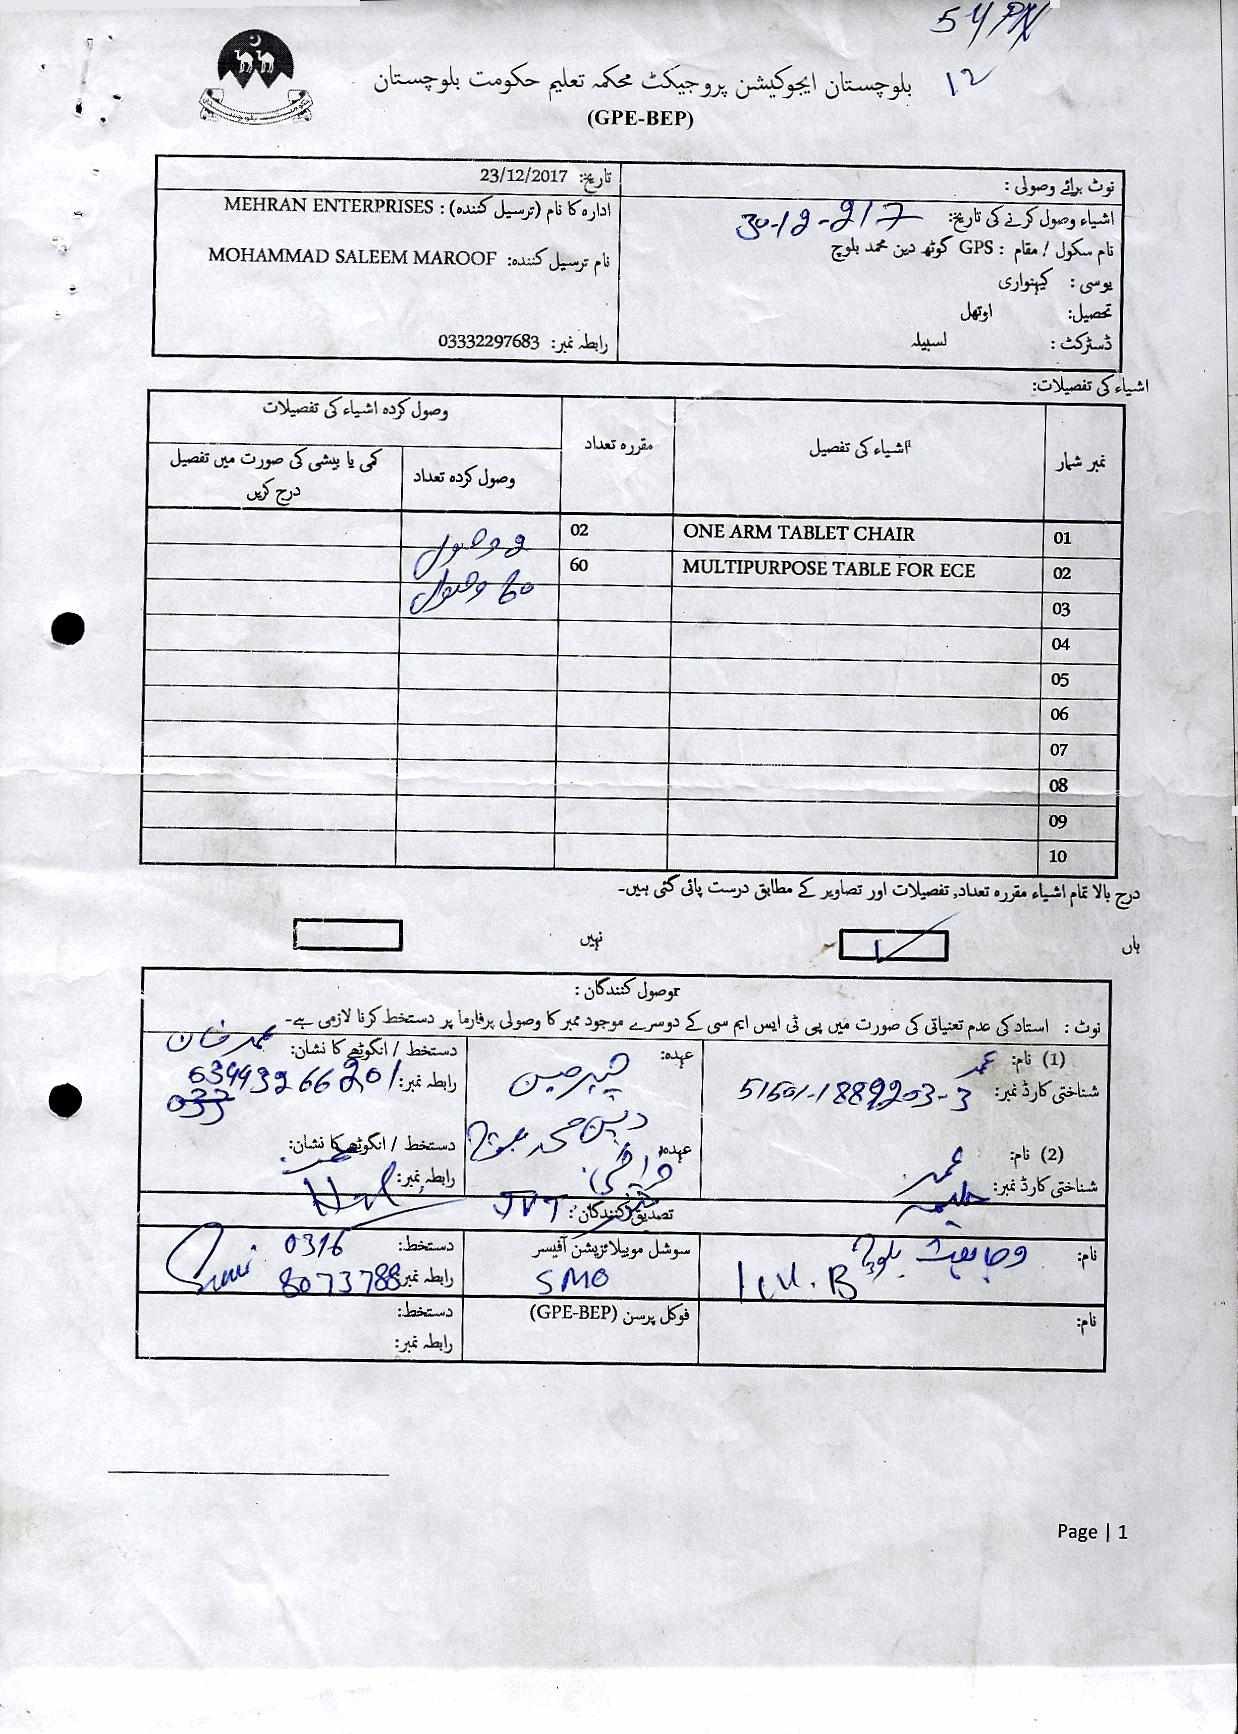 54 PN
12
بلوچستان ایجوکیشن پروجیکٹ محکمہ تعلیم حکومت بلوچستان
(GPE-BEP)
نوٹ برائے وصولی :
اشیاء وصول کرنے کی تاریخ: 30-12-217
نام سکول / مقام : GPS گوٹھ دین محمد بلوچ
یوسی : کیہنواری
تحصیل: اوتھل
ڈسٹرکٹ : لسبیلہ
تاریخ: 23/12/2017
ادارہ کا نام (ترسیل کنندہ) : MEHRAN ENTERPRISES
نام ترسیل کنندہ: MOHAMMAD SALEEM MAROOF
رابطہ نمبر: 03332297683
اشیاء کی تفصیلات:
نمبر شمار اشیاء کی تفصیل مقررہ تعداد وصول کردہ اشیاء کی تفصیلات
وصول کردہ تعداد کمی یا بیشی کی صورت میں تفصیل درج کریں
01 ONE ARM TABLET CHAIR 02 2 وصول
02 MULTIPURPOSE TABLE FOR ECE 60 60 وصول
03
04
05
06
07
08
09
10
درج بالا تمام اشیاء مقررہ تعداد, تفصیلات اور تصاویر کے مطابق درست پائی گئی ہیں۔
ہاں نہیں
وصول کنندگان :
نوٹ : استاد کی عدم تعیناتی کی صورت میں پی ٹی ایس ایم سی کے دوسرے موجود ممبر کا وصولی پرفارما پر دستخط کرنا لازمی ہے۔
(1) نام: عمر عہدہ: چیئرمین دستخط / انگوٹھے کا نشان: عمر خان
شناختی کارڈ نمبر: 51501-1889203-3 رابطہ نمبر: 03443266201
دین محمد گوٹھ
(2) نام: عہدہ: دستخط / انگوٹھے کا نشان:
شناختی کارڈ نمبر: JVT رابطہ نمبر:
تصدیق کنندگان :
نام: بلوچ سوشل موبیلائزیشن آفیسر دستخط: 0316
SMO رابطہ نمبر: 8073788
نام: فوکل پرسن (GPE-BEP) دستخط:
رابطہ نمبر:
Page | 1